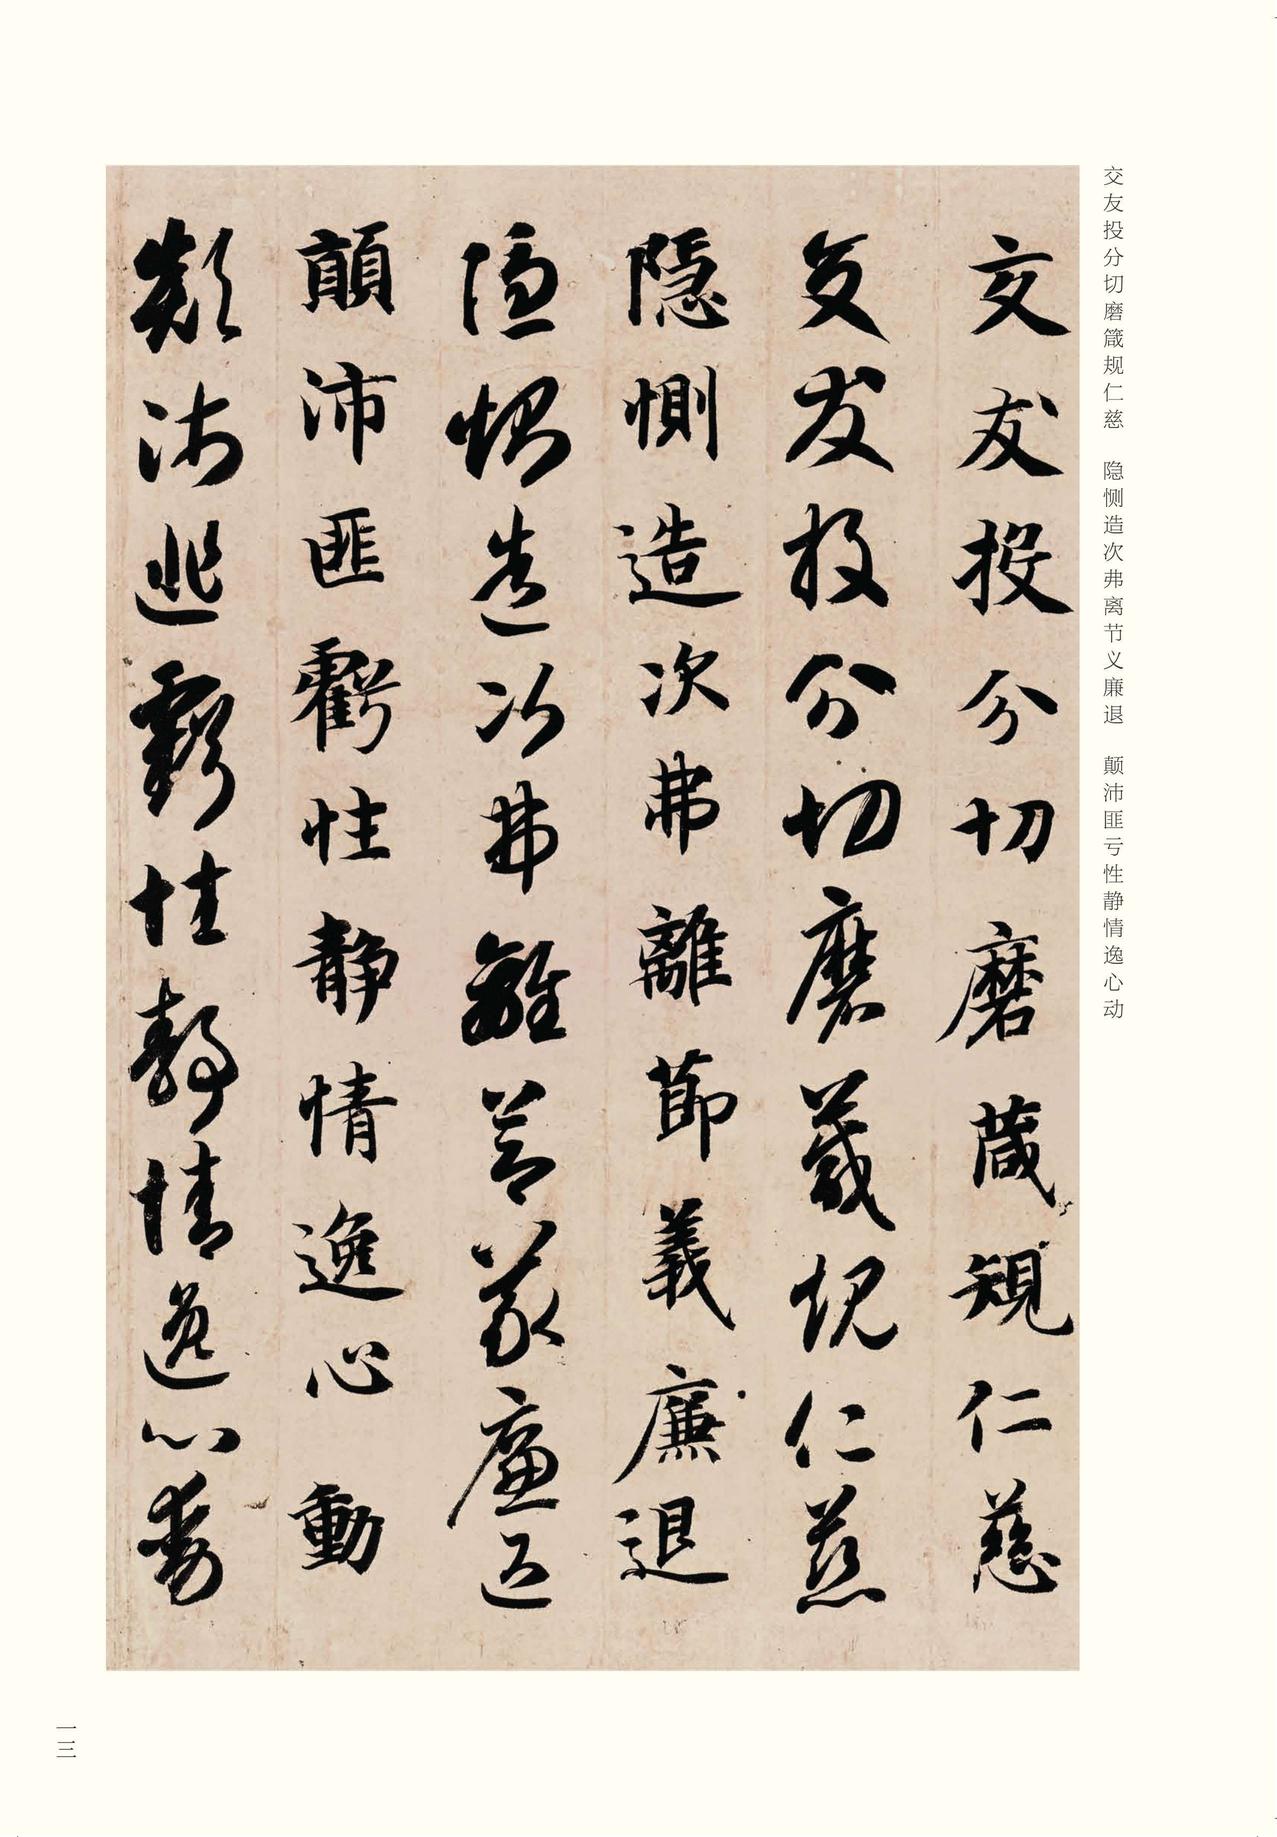 交友投分切磨箴规仁慈　隐恻造次弗离节义廉退　颠沛匪亏性静情逸心动
交友投分切磨葴規仁慈
交友投分切磨箴規仁慈
隱惻造次弗離節義廉退
隱惻造次弗離節義廉退
顛沛匪虧性靜情逸心動
顛沛匪虧性靜情逸心動
一三